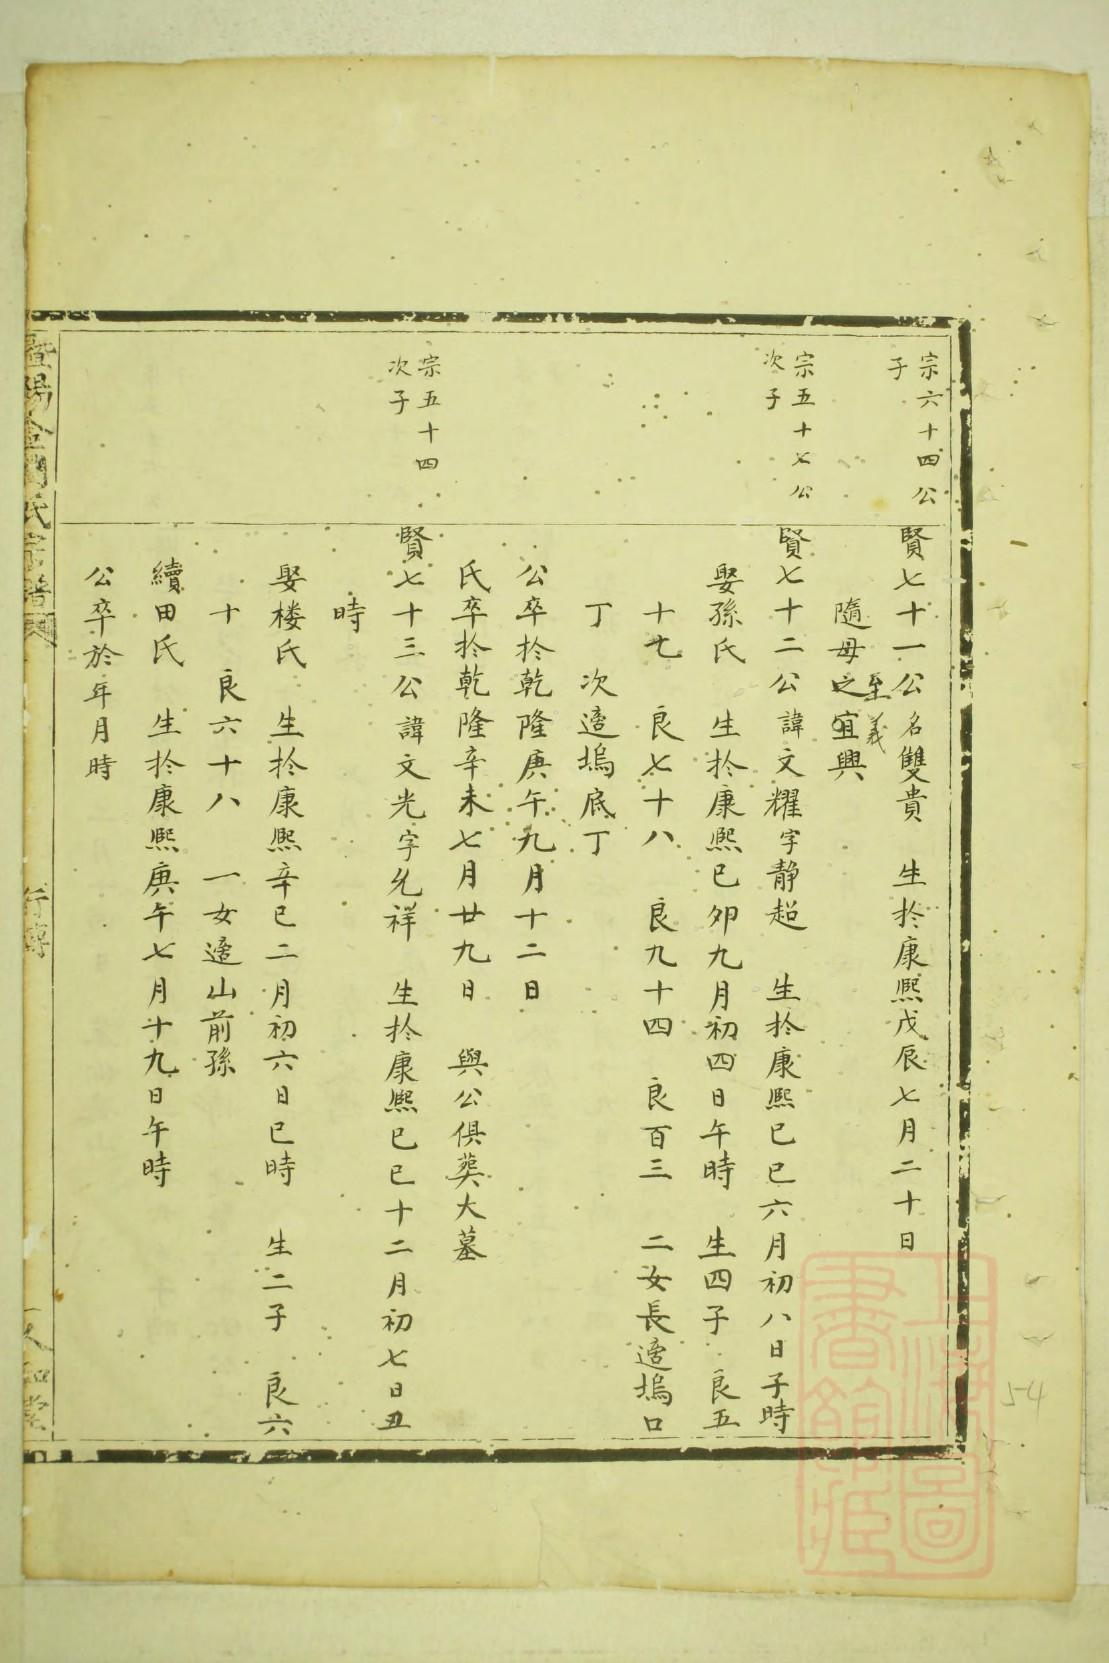 宗六十四公
子
賢七十一公名雙貴 生於康熙戊辰七月二十日
至義
隨母之宜興
宗五十七公
次子
賢七十二公諱文耀字静超 生於康熙己巳六月初八日子時
娶孫氏 生於康熙己卯九月初四日午時 生四子 良五
十七 良七十八 良九十四 良百三 二女長適塢口
丁 次適塢底丁
公卒於乾隆庚午九月十二日
氏卒於乾隆辛未七月廿九日 與公俱葬大墓
宗五十四
次子
賢七十三公諱文光字允祥 生於康熙己巳十二月初七日丑
時
娶楼氏 生於康熙辛巳二月初六日巳時 生二子 良六
十 良六十八 一女適山前孫
續田氏 生於康熙庚午七月十九日午時
公卒於年月時
暨陽 氏宗譜
行傳
上海圖書館藏
54